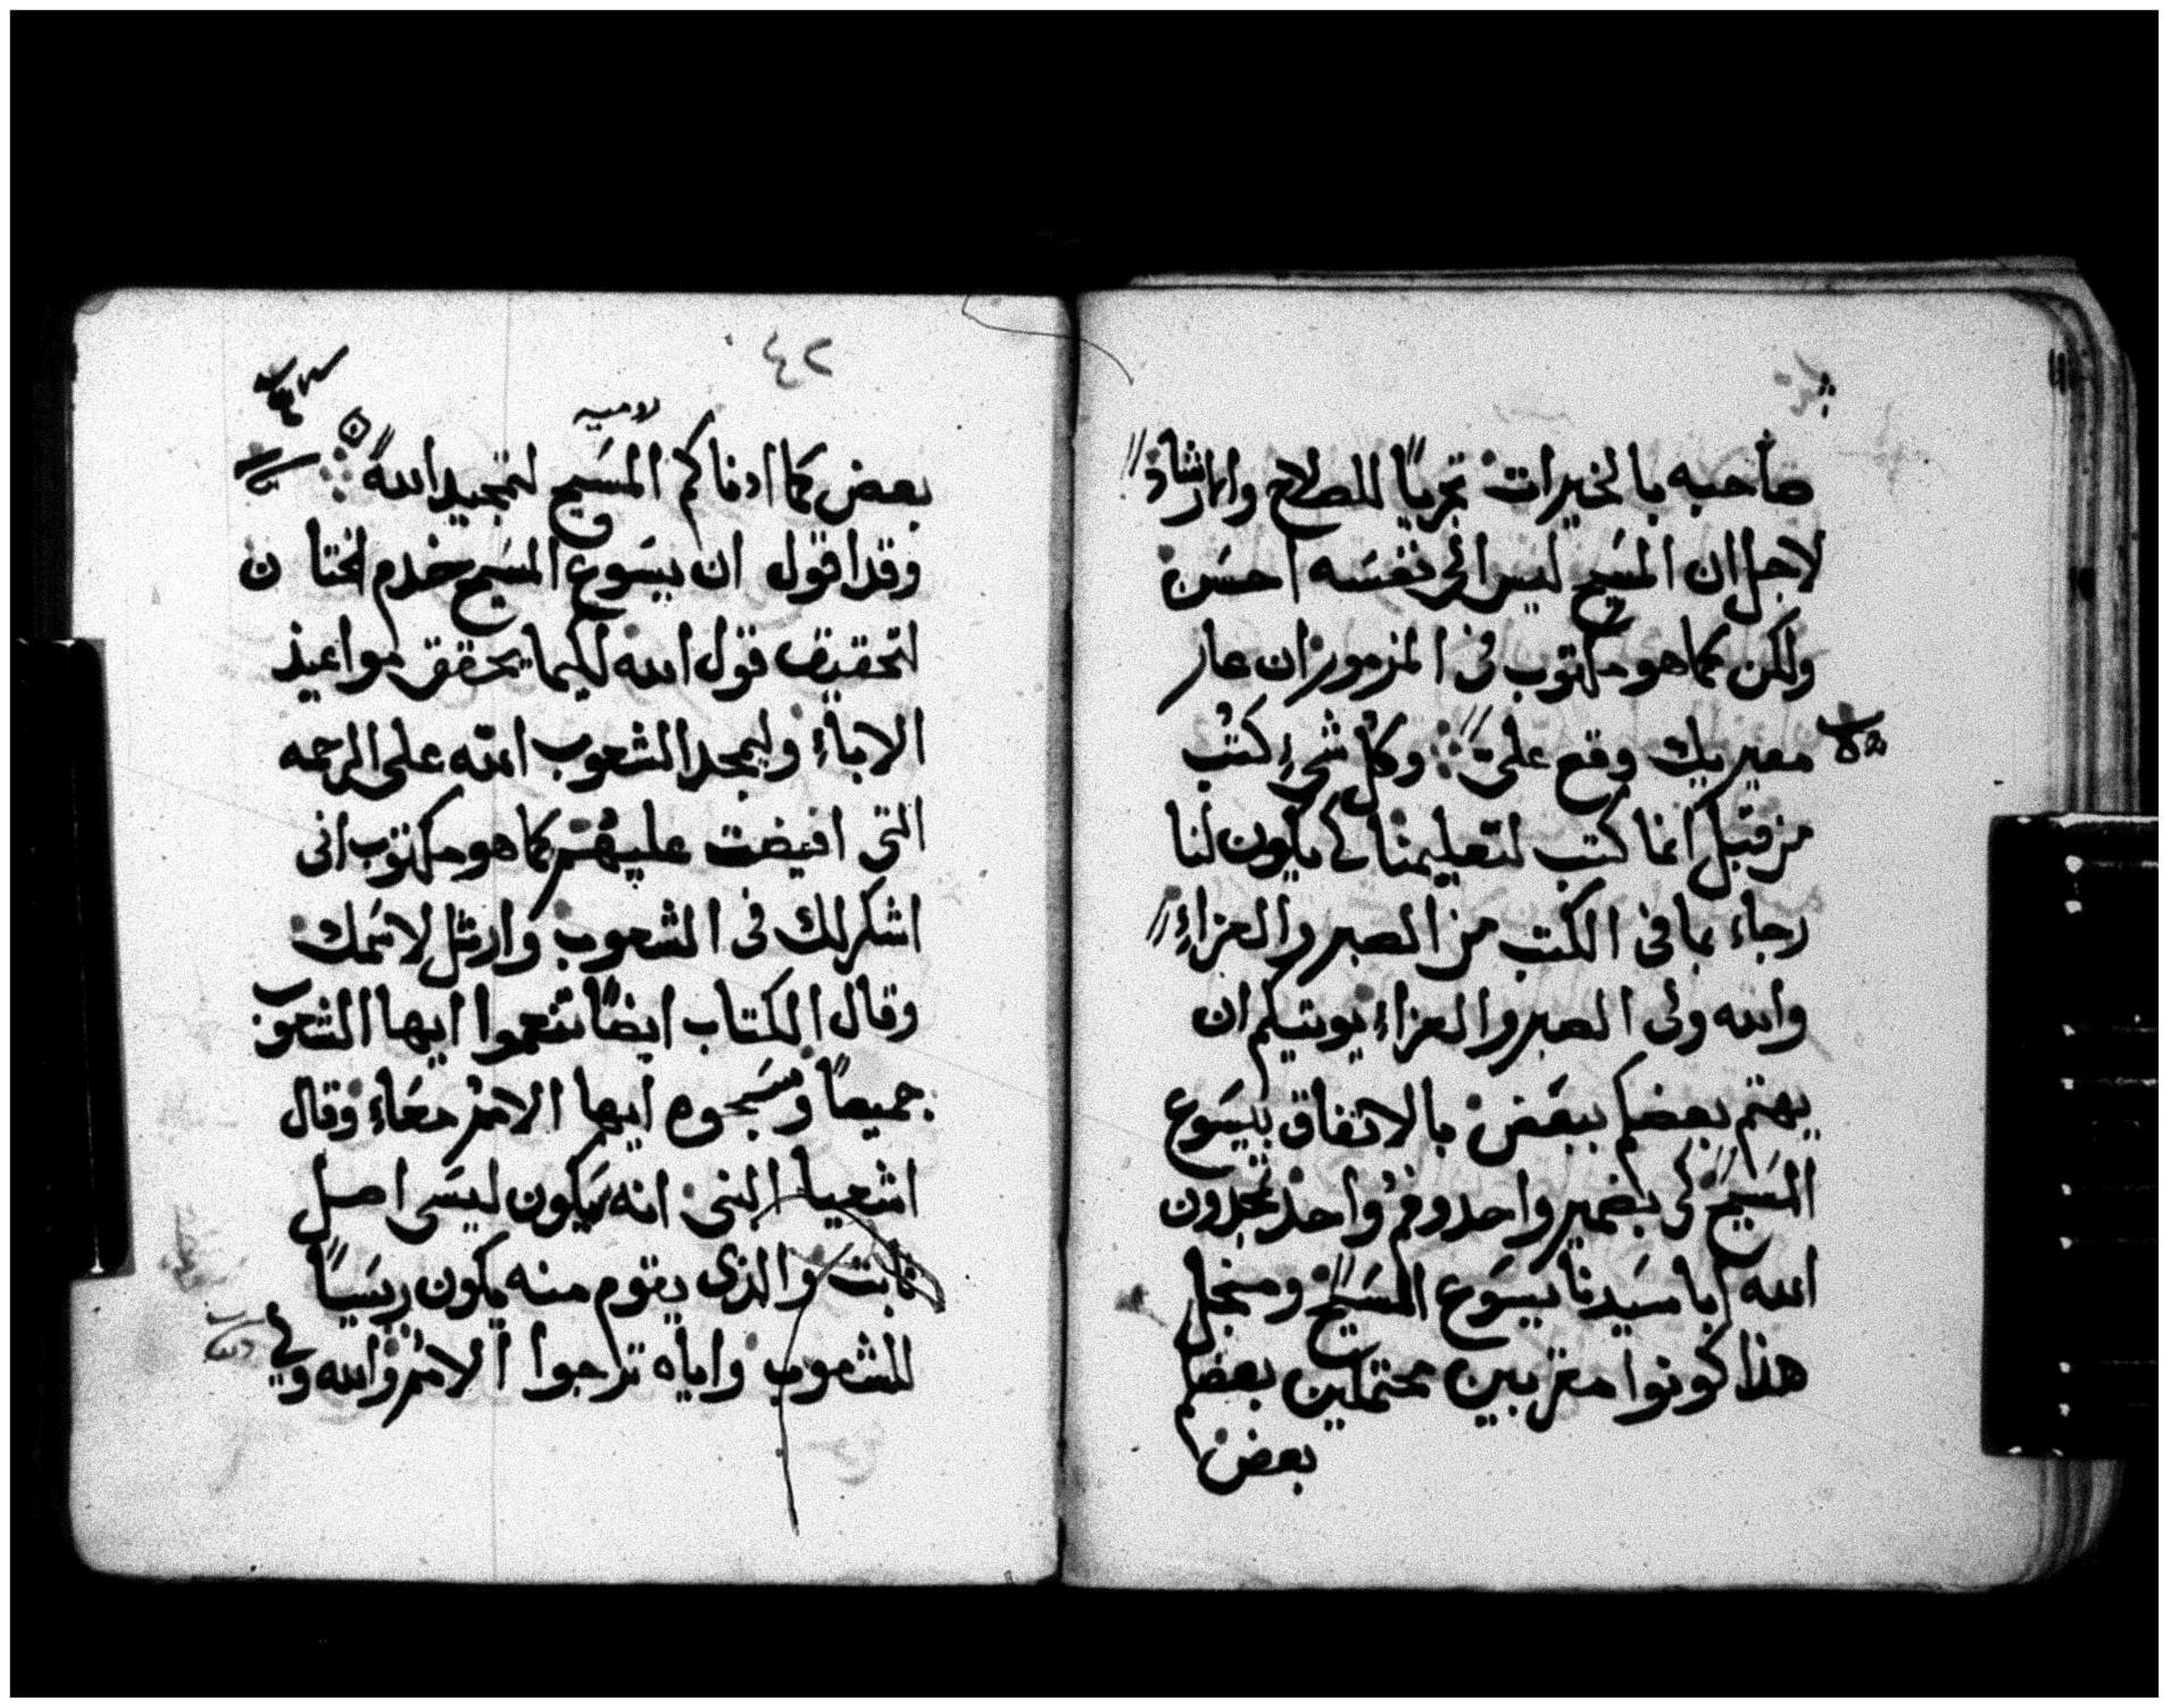 صاحبه بالخيرات تحريًا للصلاح وارشاد
لاجل ان المسيح ليس الى نفسه احسن
ولكن كما هو مكتوب فى المزمور ان عار
معيريك وقع علىّ وكل شىء كتب
من قبل انما كتب لتعليمنا لكى يكون لنا
رجاء بما فى الكتب من الصبر والعزاء
والله ولى الصبر والعزاء يوتيكم ان
يهتم بعضكم ببعض بالاتفاق بيسوع
المسيح لكى بضمير واحد وفم واحد تمجدون
الله ابا سيدنا يسوع المسيح ومن اجل
هذا كونوا مقربين محتملين بعضكم
بعض
٤٢
بعض كما ادناكم المسيح لتمجيد الله
وقد اقول ان يسوع المسيح خدم الختان
لتحقيق قول الله لكيما يحقق مواعيد
الاباء وليمجد الشعوب الله على الرحمه
التى افيضت عليهم كما هو مكتوب انى
اشكر لك فى الشعوب وارتل لاسمك
وقال الكتاب ايضًا تنعموا ايها الشعوب
جميعًا وسبحوه ايها الامم معاء وقال
اشعيا النبى انه سيكون ليسى اصل
ثابت والذى يقوم منه يكون ريسيًا
للشعوب واياه ترجوا الامم والله ولى